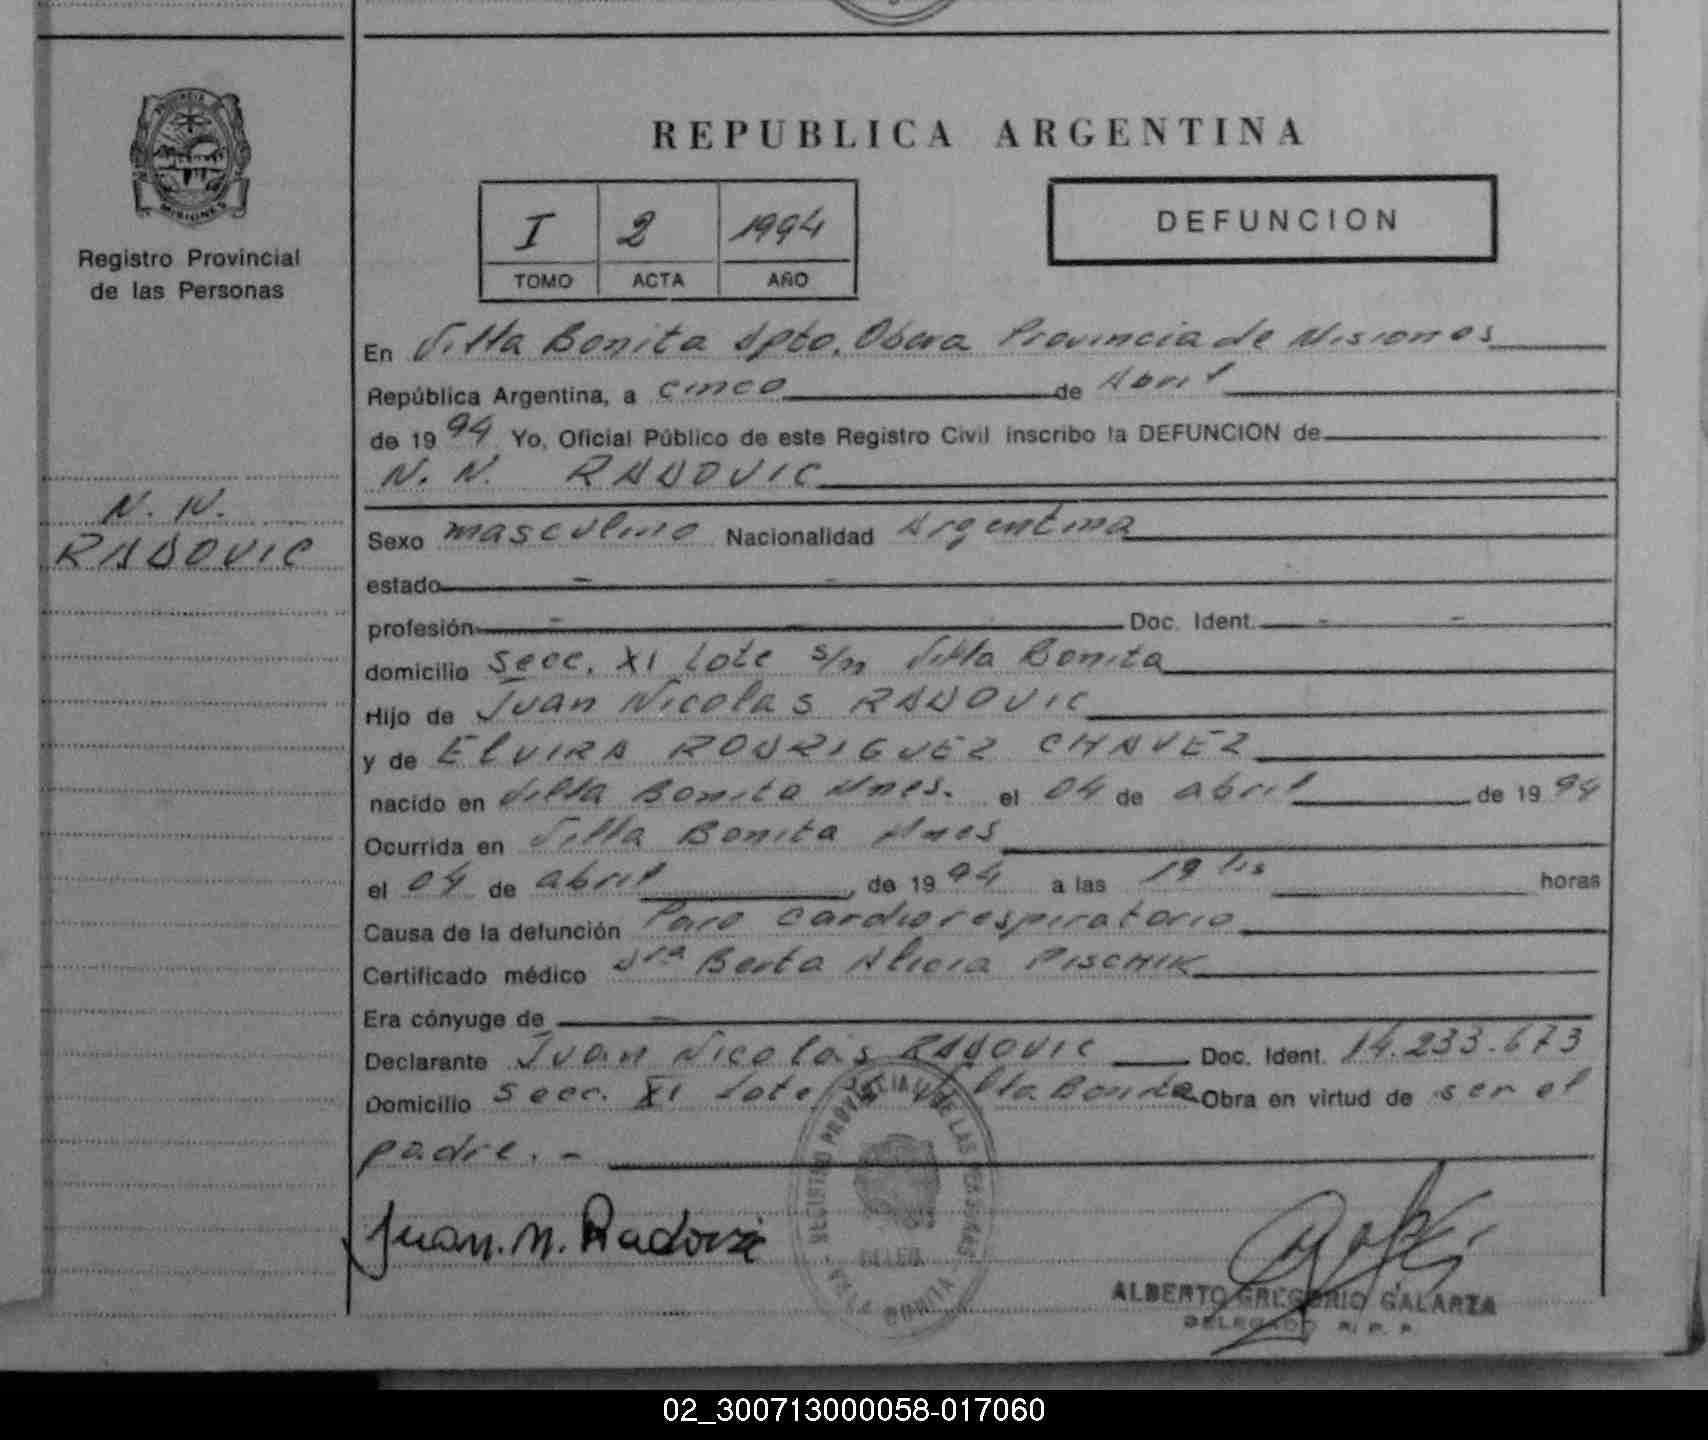 REPUBLICA ARGENTINA
PROVINCIA DE
MISIONES
Registro Provincial
de las Personas
I 2 1994
TOMO ACTA AÑO
DEFUNCION
En Villa Bonita Dpto. Obera Provincia de Misiones
República Argentina, a cinco de Abril
de 1994 Yo, Oficial Público de este Registro Civil inscribo la DEFUNCION de
N. N. RADOVIC
N. N.
RADOVIC
Sexo masculino Nacionalidad Argentina
estado - -
profesión - - Doc. Ident. - -
domicilio Secc. XI Lote s/n Villa Bonita
Hijo de Juan Nicolas RADOVIC
y de ELVIRA RODRIGUEZ CHAVEZ
nacido en Villa Bonita Mnes. el 04 de abril de 1994
Ocurrida en Villa Bonita Mnes
el 04 de abril de 1994 a las 19 horas
Causa de la defunción Paro cardiorespiratorio
Certificado médico Dra Berta Alicia PISCHIK
Era cónyuge de -
Declarante Juan Nicolás RADOVIC Doc. Ident. 14.233.673
Domicilio Secc. XI Lote Villa Bonita Obra en virtud de ser el
padre. -
REGISTRO PROVINCIAL DE LAS PERSONAS
VILLA BONITA
Juan. N. Radovic
ALBERTO GREGORIO GALARZA
DELEGADO R. P. P.
02_300713000058-017060